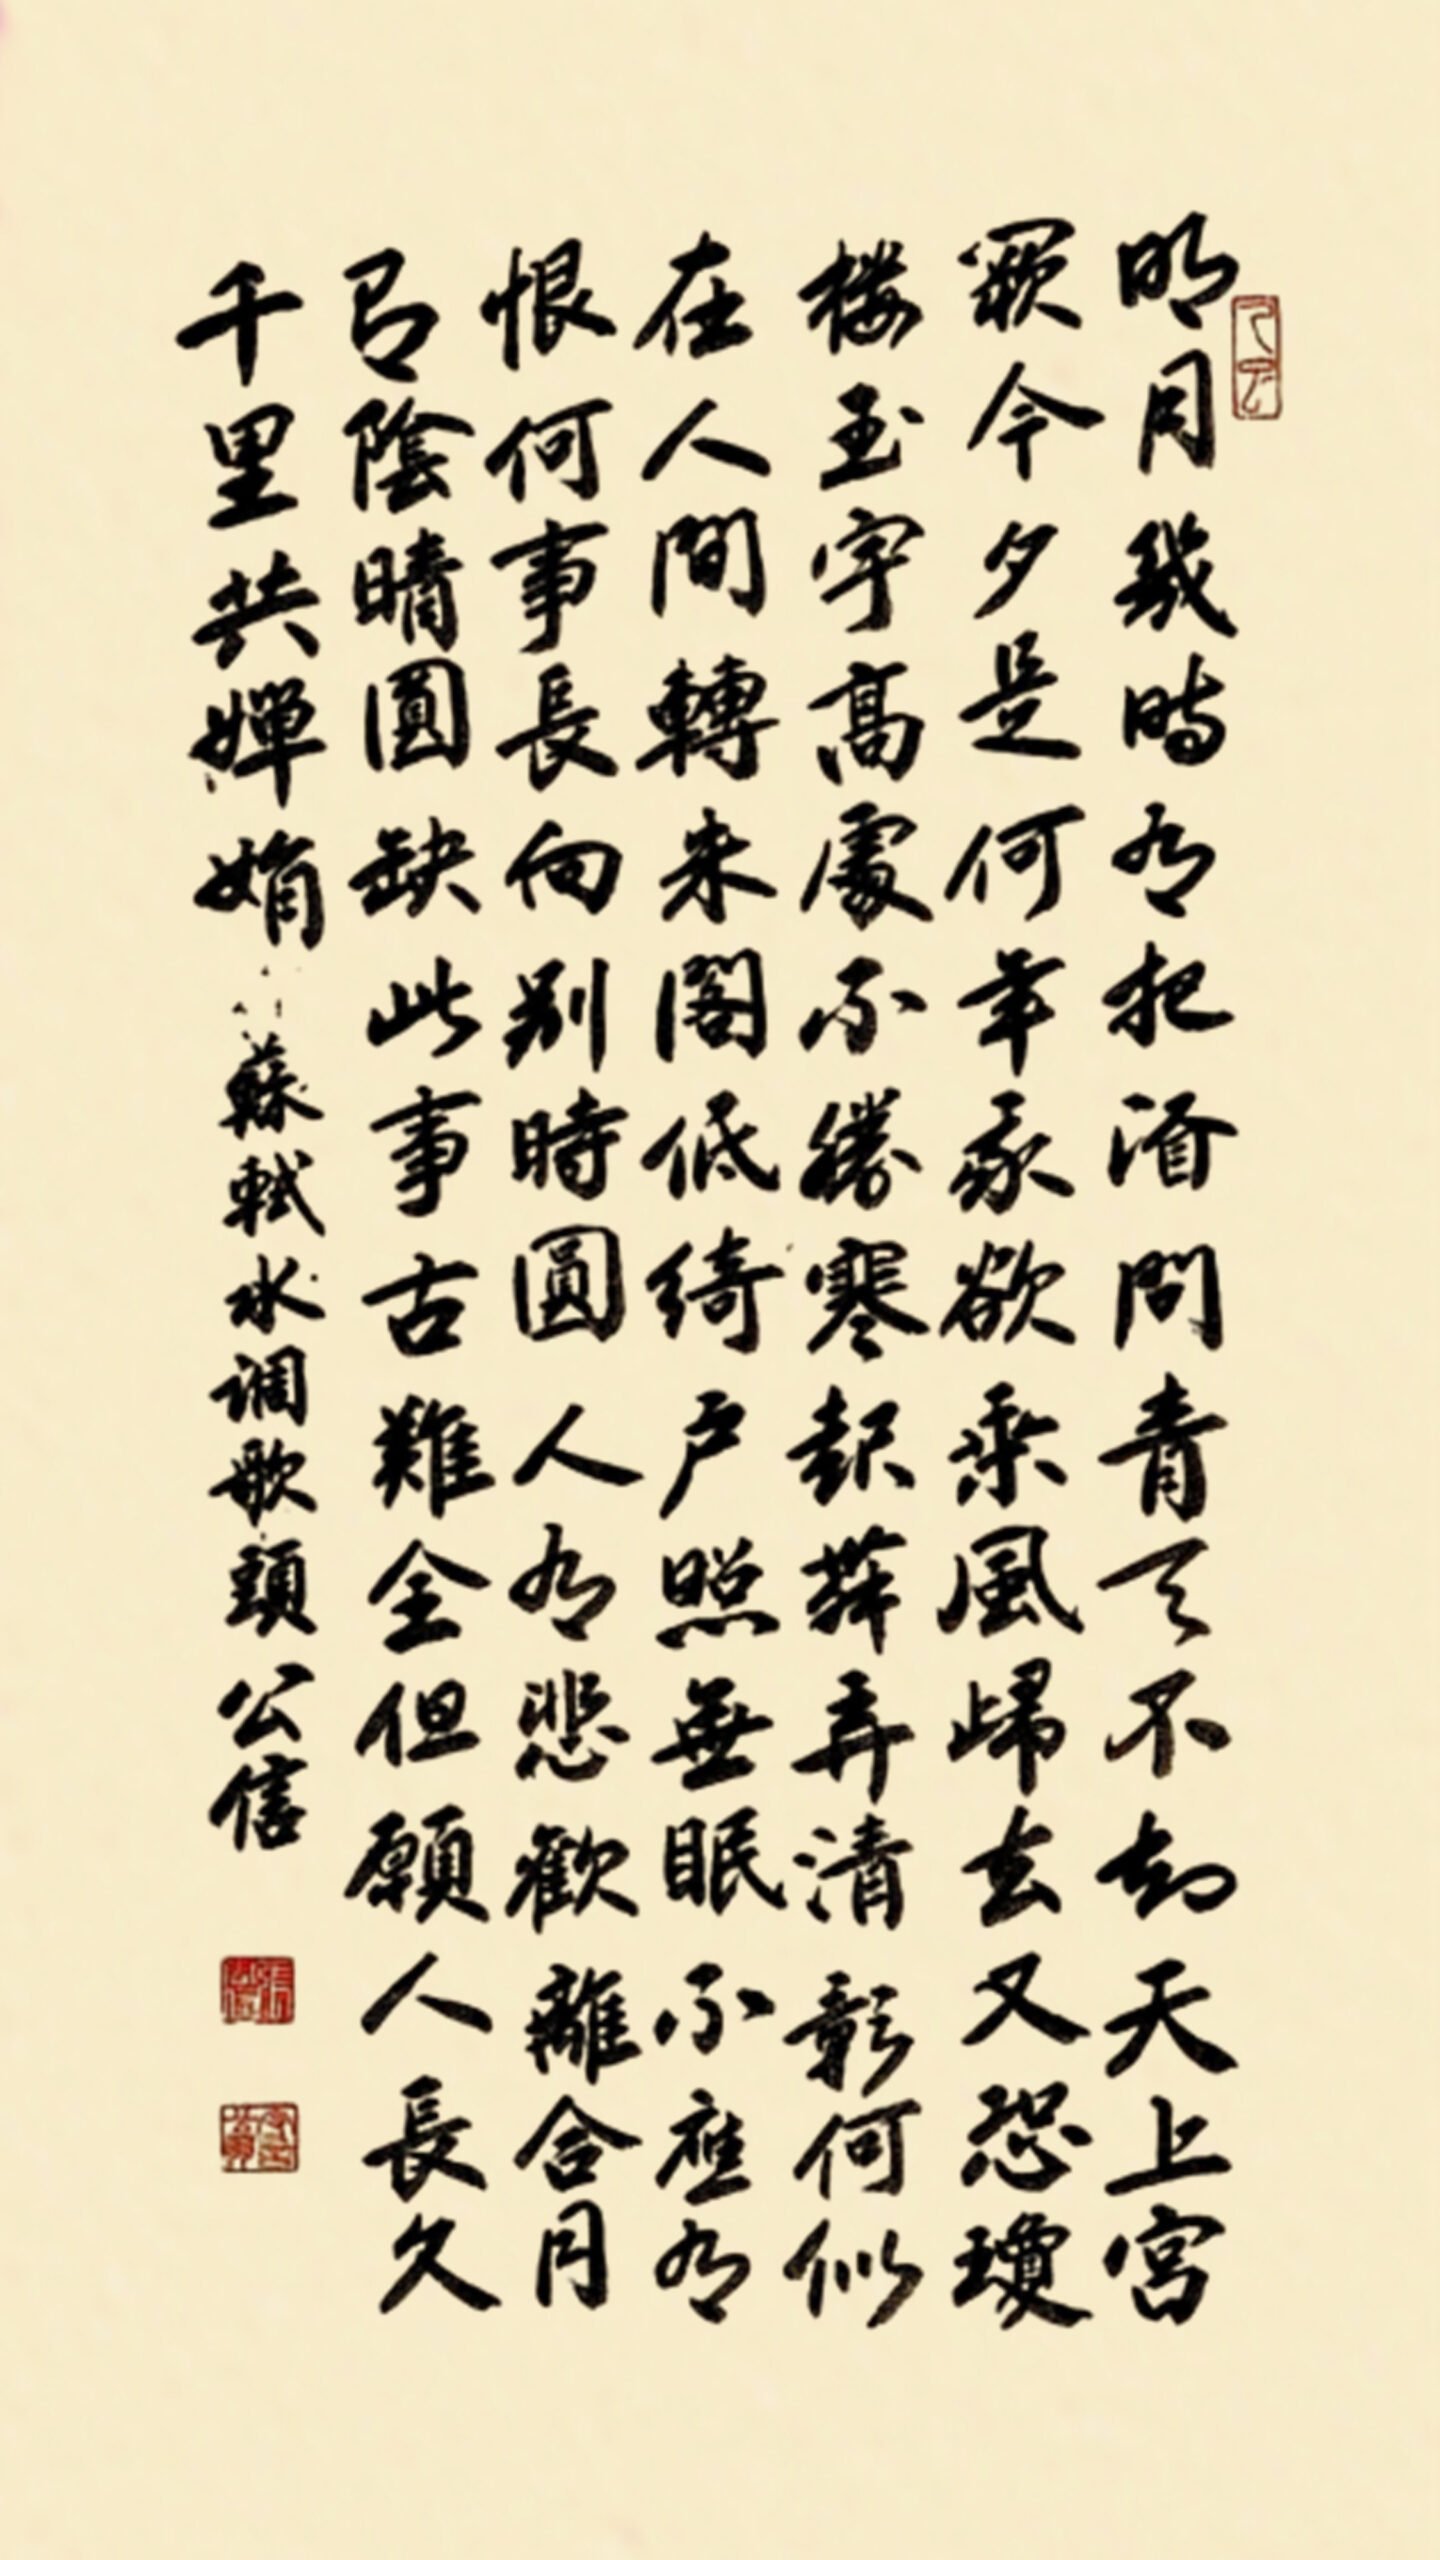 明月幾時有把酒問青天不知天上宮
闕今夕是何年我欲乘風歸去又恐瓊
樓玉宇高處不勝寒起舞弄清影何似
在人間轉朱閣低綺戶照無眠不應有
恨何事長向別時圓人有悲歡離合月
有陰晴圓缺此事古難全但願人長久
千里共嬋娟 蘇軾水調歌頭 公信